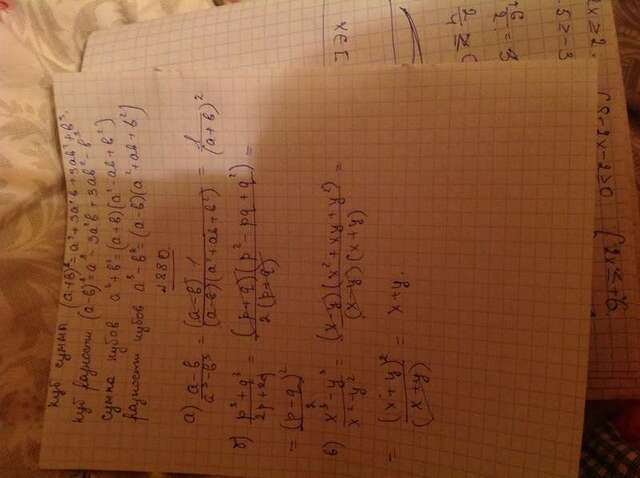 куб суммы (a+b)³ = a³+3a²b+3ab²+b³.
куб разности (a-b)³ = a³-3a²b+3ab²-b³
сумма кубов a³+b³=(a+b)(a²-ab+b²)
разности кубов a³-b³=(a-b)(a²+ab+b²)
№880.
а) (a-b)/(a³-b³) = (a-b) 1/((a-b)(a²+ab+b²)) = 1/(a+b)²
б) (p³+q³)/(2p+2q) = ((p+q)(p²-pq+q²))/(2(p+q)) =
= (p-q)²/2
в) (x³-y³)/(x²-y²) = ((x-y)(x²+xy+y²))/((x-y)(x+y)) =
= (x+y)²/(x+y) = x+y.